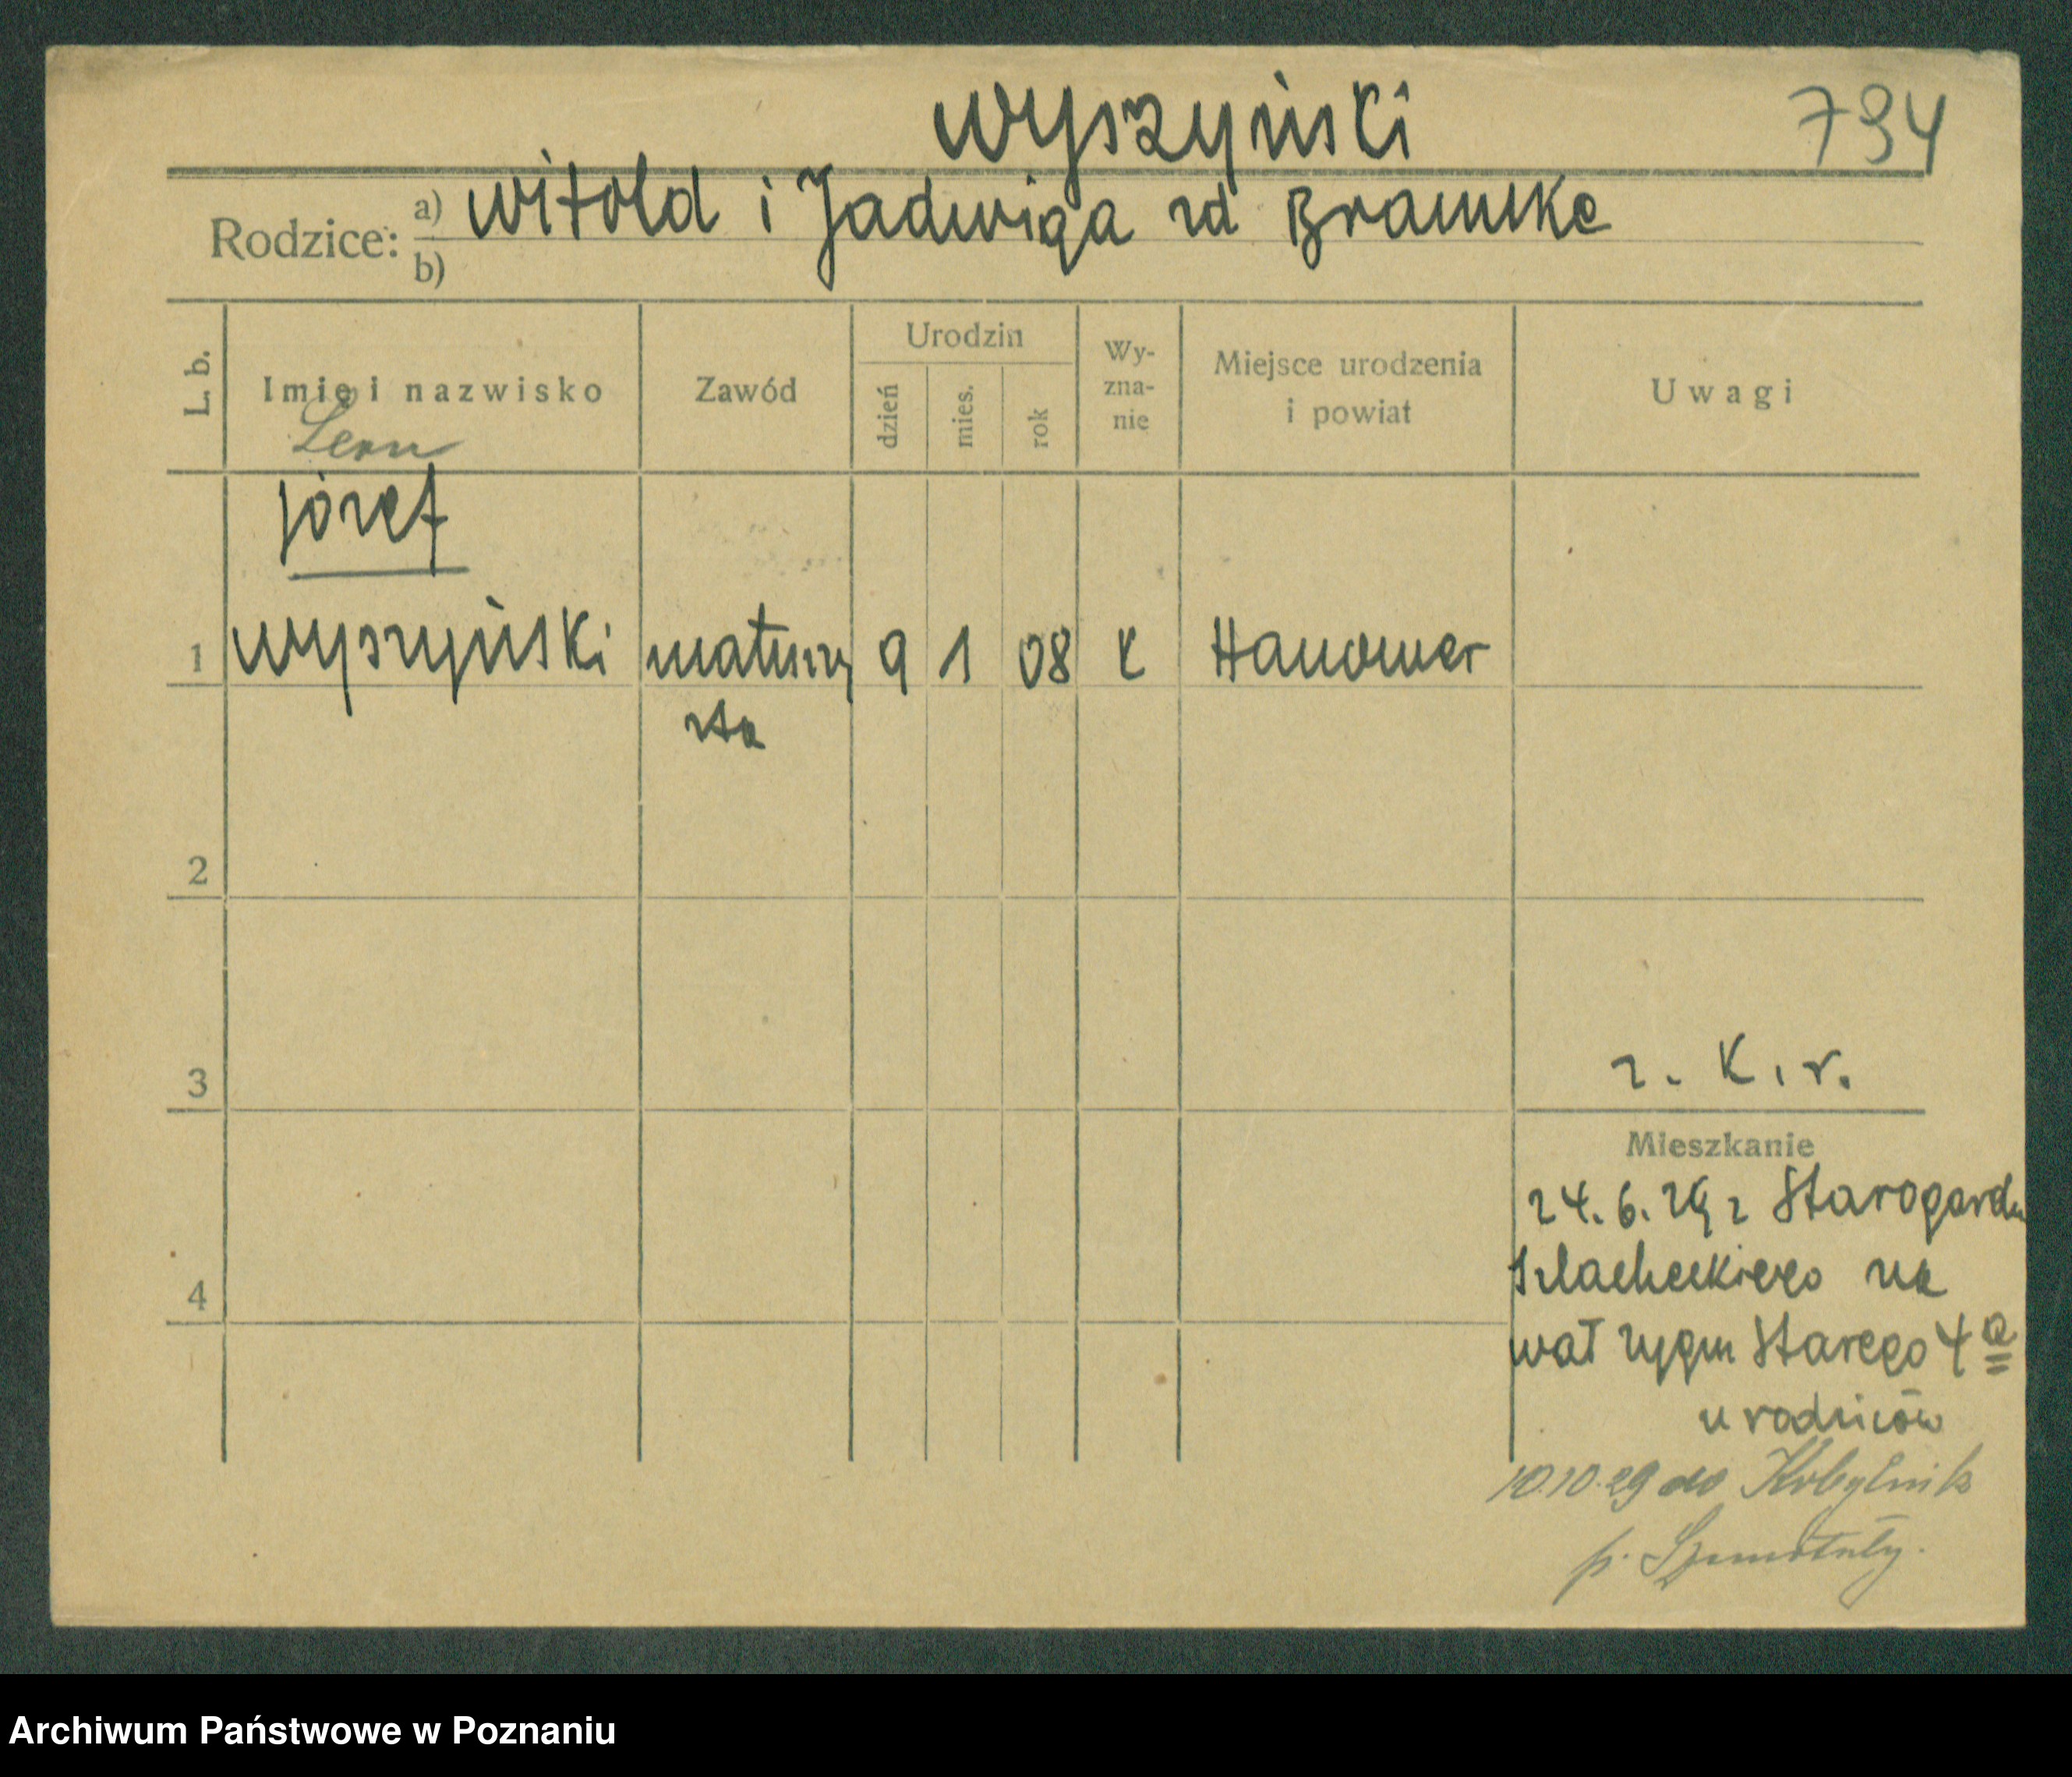 Wyszyński
794
Rodzice: a) Witold i Jadwiga zd
b)
L. b.
Imię i nazwisko
Zawód
Urodzin
dzień
mies.
rok
Wy-
zna-
nie
Miejsce urodzenia
i powiat
Uwagi
Leon
Józef
1 Wyszyński maturzy 9 1 08 k Hanower
sta
2
3
z. k. r.
Mieszkanie
24.6.29 z Starogardu
Szlacheckiego na
wał Zygm Starego 4a
u rodziców
10.10.29 do Kobylnik
p. Szamotuły.
4
Archiwum Państwowe w Poznaniu